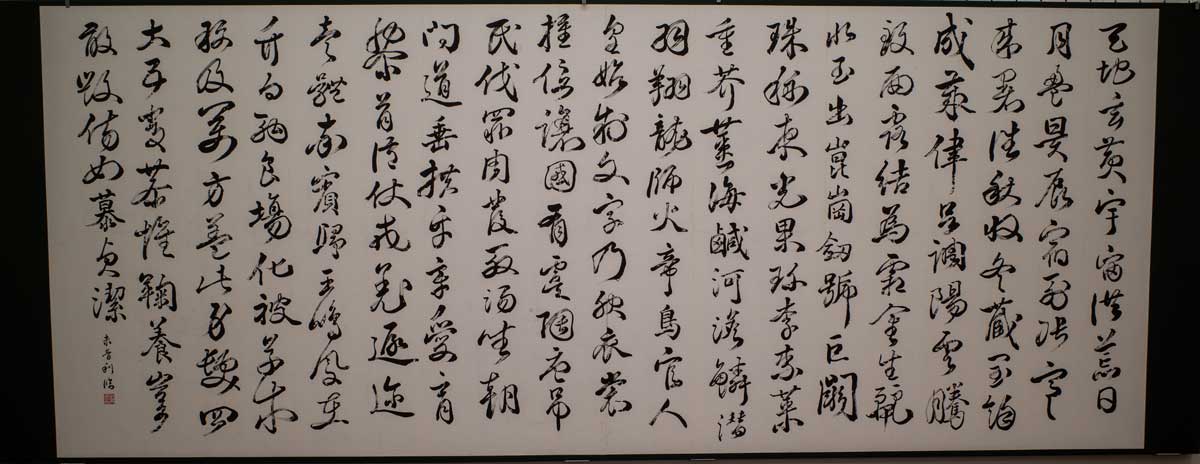 天地玄黃宇宙洪荒日
月盈昃辰宿列張寒
來暑往秋收冬藏閏餘
成歲律呂調陽雲騰
致雨露結為霜金生麗
水玉出崑崗劍號巨闕
珠稱夜光果珍李柰菜
重芥薑海鹹河淡鱗潛
羽翔龍師火帝鳥官人
皇始制文字乃服衣裳
推位讓國有虞陶唐弔
民伐罪周發殷湯坐朝
問道垂拱平章愛育
黎首臣伏戎羌遐邇
壹體率賓歸王鳴鳳在
竹白駒食場化被草木
賴及萬方蓋此身髮四
大五常恭惟鞠養豈
敢毀傷女慕貞潔